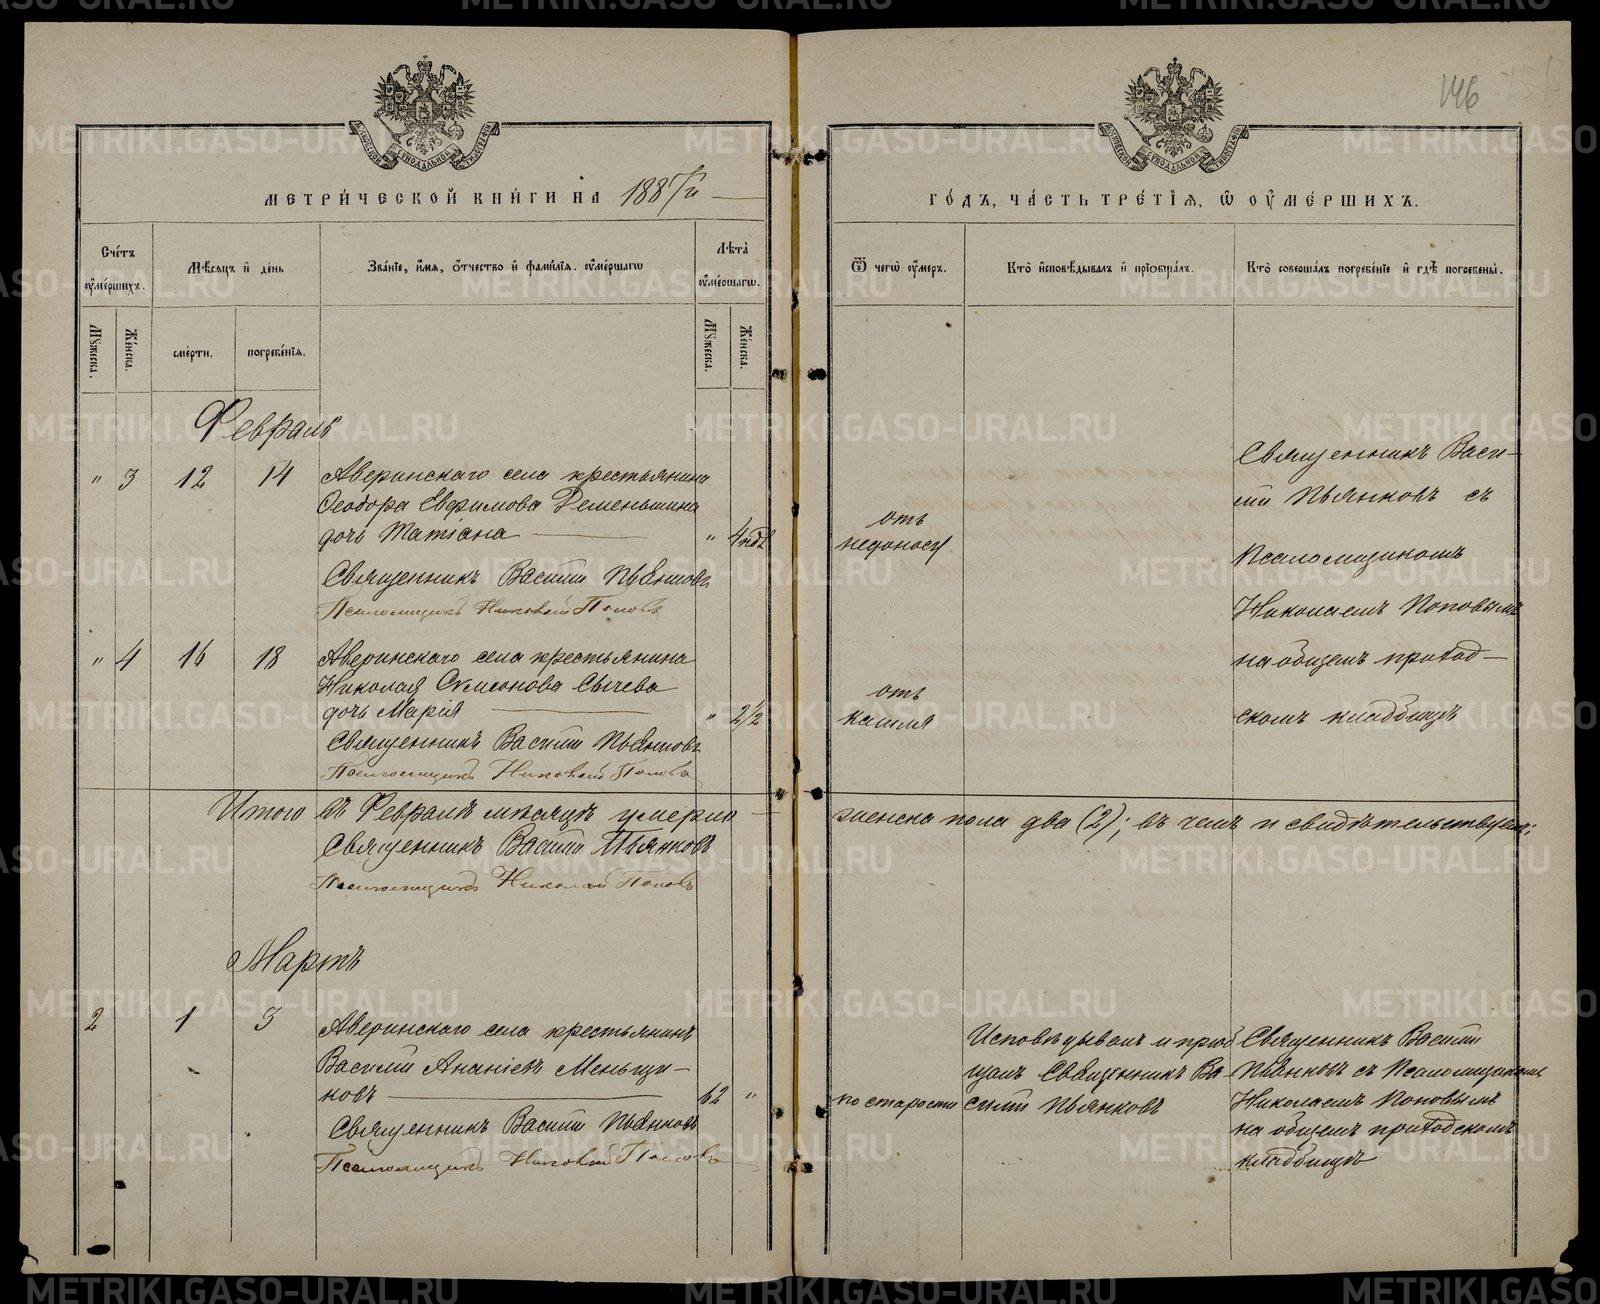 146
МЕТРИ́ЧЕСКОЙ КНИ́ГИ НА 1887й
ГО́ДЪ, ЧА́СТЬ ТРЕ́ТІѦ, Ѡ ОУ҆МЕ́РШИХЪ.
Сче́тъ оу҆ме́ршихъ.
Мѣ́сяцъ и҆ де́нь
Зва́нїе, и҆́мя, ѻ҆́тчество и҆ фами́лїя. оу҆ме́ршагѡ
Лѣ́та оу҆ме́ршагѡ.
Ѿ чегѡ̀ оу҆́меръ.
Кто̀ и҆сповѣ́дывалъ и҆ прїѡбща́лъ.
Кто̀ соверша́лъ погребе́нїе и҆ гдѣ̀ погребены̀.
Мꙋ́жеска.
Же́нска.
сме́рти.
погребе́нїя.
Мꙋ́жеска.
Же́нска.
Февраль
" 3 12 14 Аверинскаго села крестьянина
Ѳеодора Евфимова Деменьшина
дочь Татіана " 4 ндѣ
Священникъ Василій Пьянковъ
Псаломщикъ Николай Поповъ
отъ
недоносу
Священникъ Васи-
лій Пьянковъ съ
Псаломщикомъ
Николаемъ Поповымъ
на общемъ приход-
скомъ кладбищѣ
" 4 16 18 Аверинскаго села крестьянина
Николая Симонова Сычева
дочь Марія " 2½
Священникъ Василій Пьянковъ
Псаломщикъ Николай Поповъ
отъ
кашля
Итого въ Февралѣ мѣсяцѣ умерло женска пола два (2); въ чемъ и свидѣтельствуемъ:
Священникъ Василій Пьянковъ
Псаломщикъ Николай Поповъ
Мартъ
2 1 3 Аверинскаго села крестьянинъ
Василій Ананіевъ Меньщи-
ковъ 62 "
Священникъ Василій Пьянковъ
Псаломщикъ Николай Поповъ
по старости
Исповѣдывалъ и пріоб
щалъ Священникъ Ва-
силій Пьянковъ
Священникъ Василій
Пьянковъ съ Псаломщикомъ
Николаемъ Поповымъ
на общемъ приходскомъ
кладбищѣ
METRIKI.GASO-URAL.RU